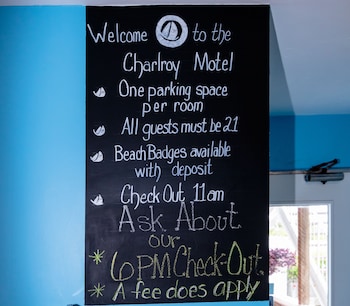 Welcome to the
Charlroy Motel
One parking space
per room
All guests must be 21
Beach Badges available
with deposit
Check Out 11am
Ask About
our
6 PM Check-Out
* A fee does apply